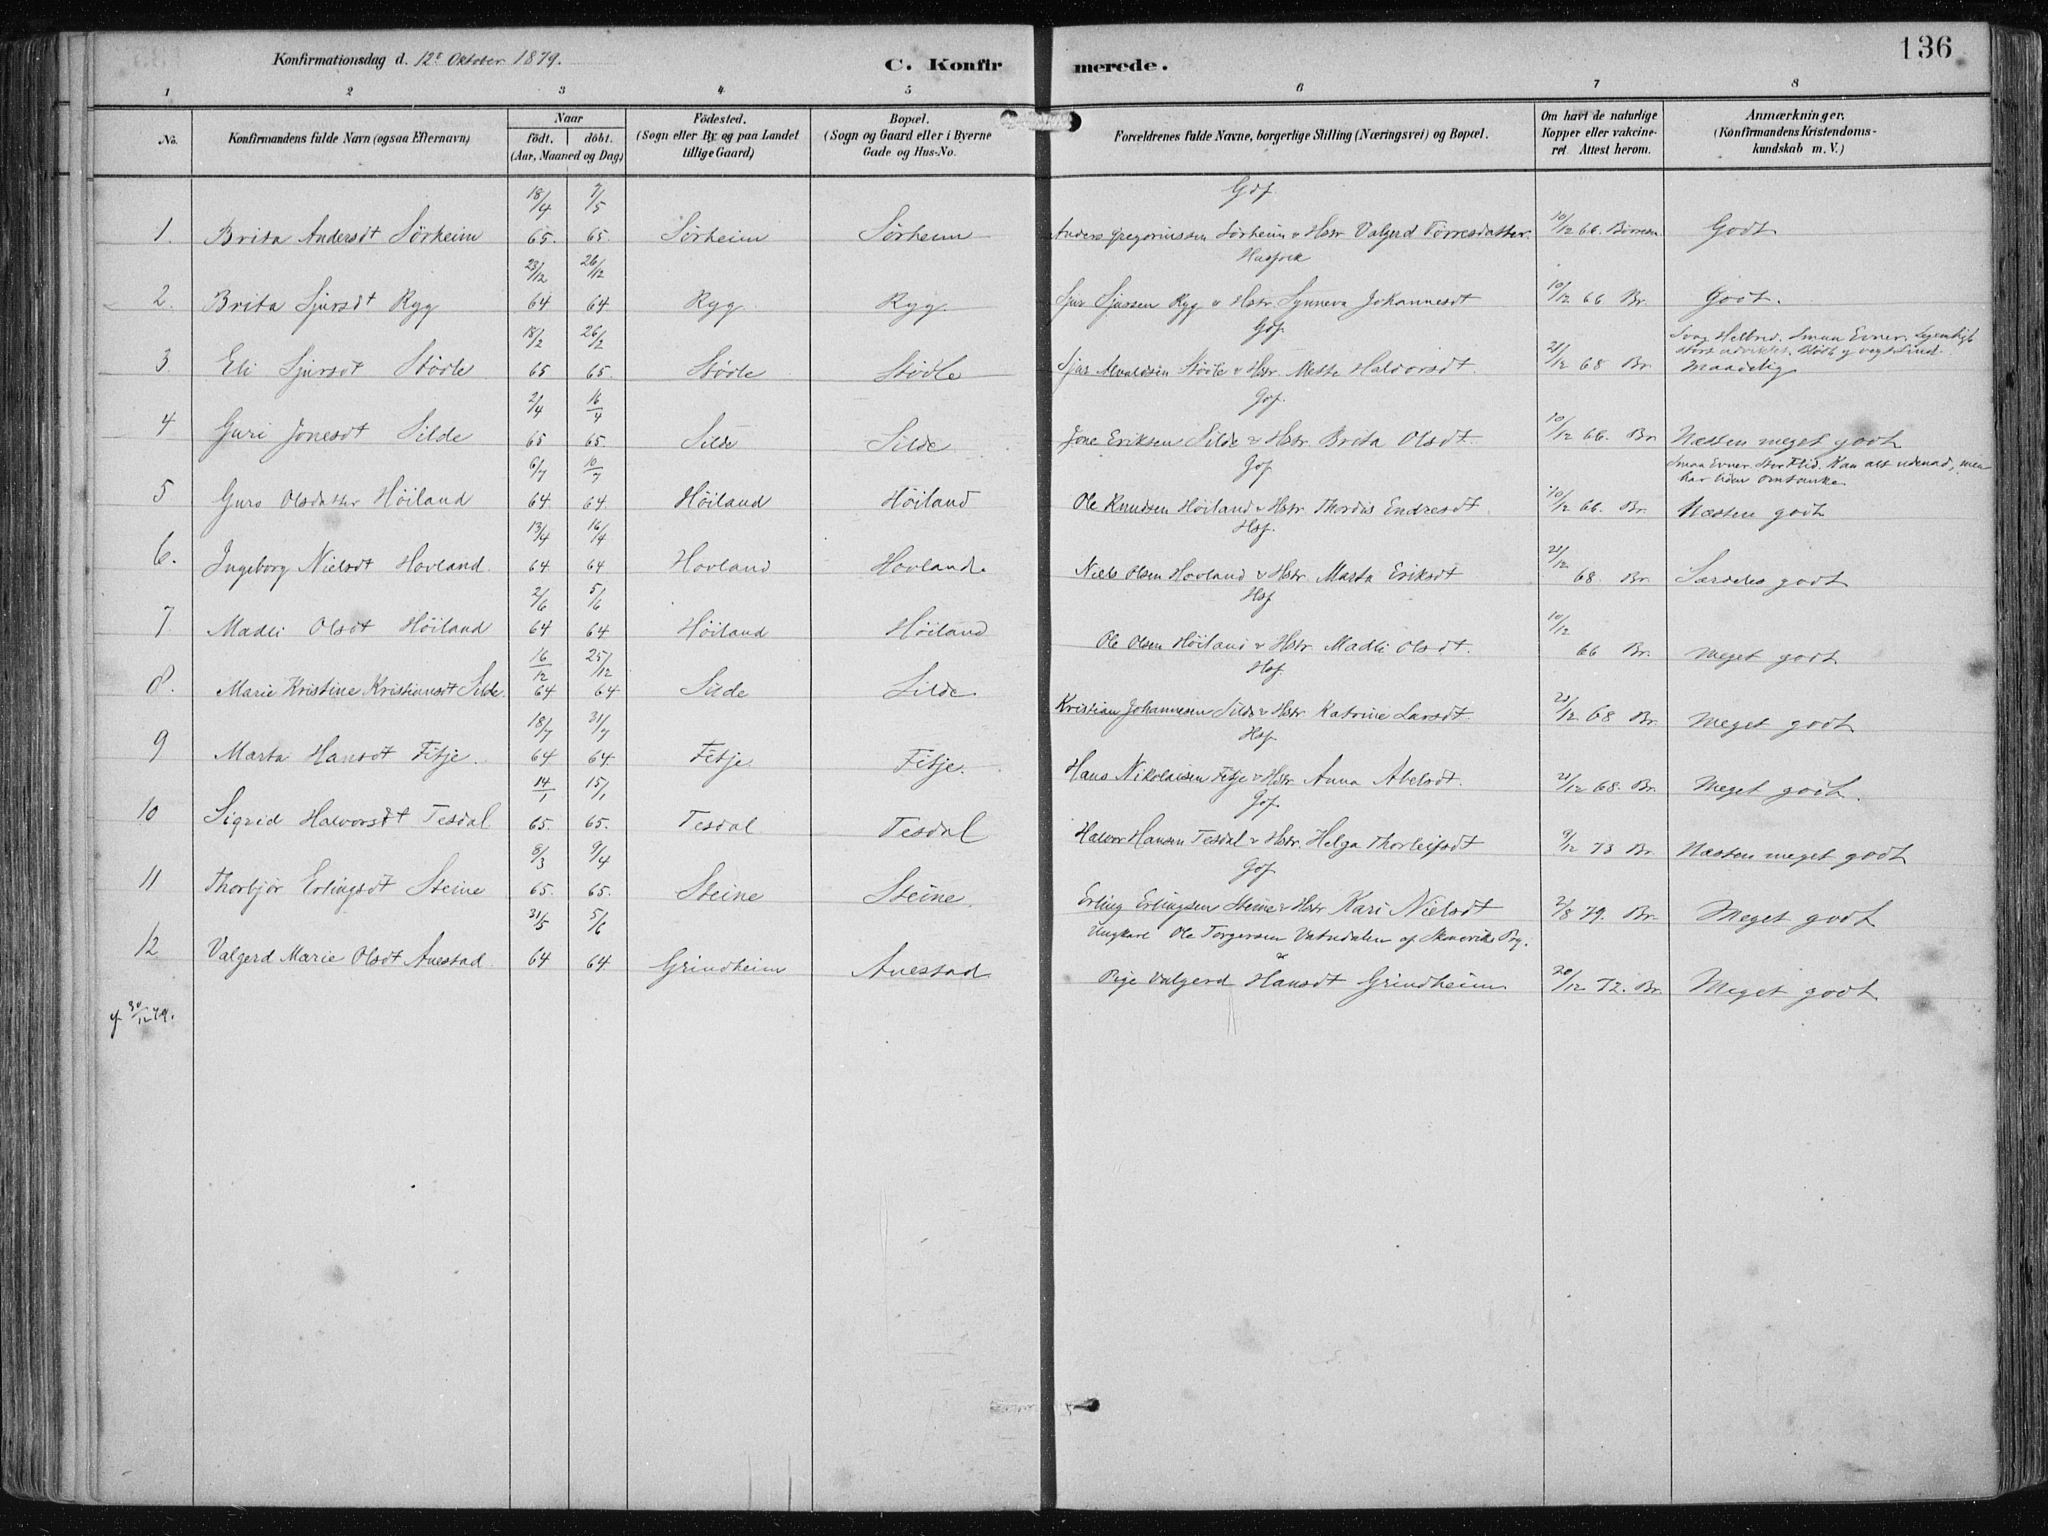 Konfirmationsdag d. 12te Oktober 1879.
C. Konfirmerede.
136
1 2 3 4 5 6 7 8
No. Konfirmandens fulde Navn (ogsaa Efternavn) Naar födt. döbt. (Aar, Maaned og Dag) Födested. (Sogn eller By og paa Landet tillige Gaard) Bopæl. (Sogn og Gaard eller i Byerne Gade og Hus-No. Forældrenes fulde Navne, borgerlige Stilling (Næringsvei) og Bopæl. Om havt de naturlige Kopper eller vakcineret. Attest herom. Anmærkninger. (Konfirmandens Kristendomskundskab m. V.)
18/4 7/5 Gbf.
1. Brita Andersdt Sörheim 65. 65. Sörheim Sörheim Anders Gregoriussen Sörheim & Hstr Valgerd Torresdatter. 10/12 66. Börresen Godt
23/12 26/12 Husfolk
2. Brita Sjursdt Ryg 64 64 Ryg Ryg Sjur Sjursen Ryg & Hstr. Synneva Johannesdt 10/12 66 Br. Godt.
18/2 26/2 Gbf. Svag Helbred. Smaa Evner.
3. Eli Sjursdt Stödle 65 65. Stödle Stödle Sjur Stödle & Hstr. Mette Halvorsdt. 21/12 68 Br. Maadelig
2/4 16/4 Gbf.
4 Guri Jonesdt Silde 65 65. Silde Silde. Jone Eriksen Silde & Hstr. Brita Olsdt. 10/12 66. Br Næsten meget godt
6/7 10/7 Gbf Smaa Evner. Stor Flid. Kan alt udenad, men har liden Omtanke.
5 Guro Olsdatter Höiland 64. 64. Höiland Höiland Ole Knudsen Höiland & Hstr. Thordis Endresdt. 10/12 66. Br. Næsten godt
13/4 16/4 Hsf.
6. Ingeborg Nielsdt Hovland. 64 64 Hovland Hovland. Niels Olsen Hovland & Hstr. Marta Eriksdt 21/12 68. Br. Særdeles godt
2/6 5/6 Hsf
7. Madli Olsdt Höiland 64 64 Höiland Höiland Ole Olsen Höiland & Hstr. Madli Olsdt. 10/12 66 Br. Meget godt
16/12 25/12 Hsf.
8. Marie Kristine Kristiansdt Silde. 64 64 Silde Silde. Kristian Johannesen Silde & Hstr Katrine Larsdt. 21/12 68 Br. Meget godt
18/7 31/7 Hsf.
9 Marta Hansdt Fitje. 64 64. Fitje Fitje. Hans Nikolaisen Fitje & Hstr. Anna Abelsdt. 21/12 68. Br. Meget godt.
14/1 15/1 Gbf.
10 Sigrid Halvorsdt Tesdal 65. 65. Tesdal Tesdal Halvor Hansen Tesdal & Hstr. Helga Thorleifsdt 9/12 73 Br. Næsten meget godt
8/3 9/4 Gbf
11 Thorbjör Erlingsdt Steine 65. 65. Steine Steine. Erling Erlingsen Steine & Hstr Kari Nielsdt 2/8 79. Br. Meget godt
31/5 5/6 Ungkarl Ole Torgersen Vatndalen af Skonevik Prg.
12 Valgerd Marie Olsdt Auestad 64 64. Grindheim Auestad & Pige Valgerd Hansdt Grindheim 20/12 72. Br. Meget godt
30/12 79.